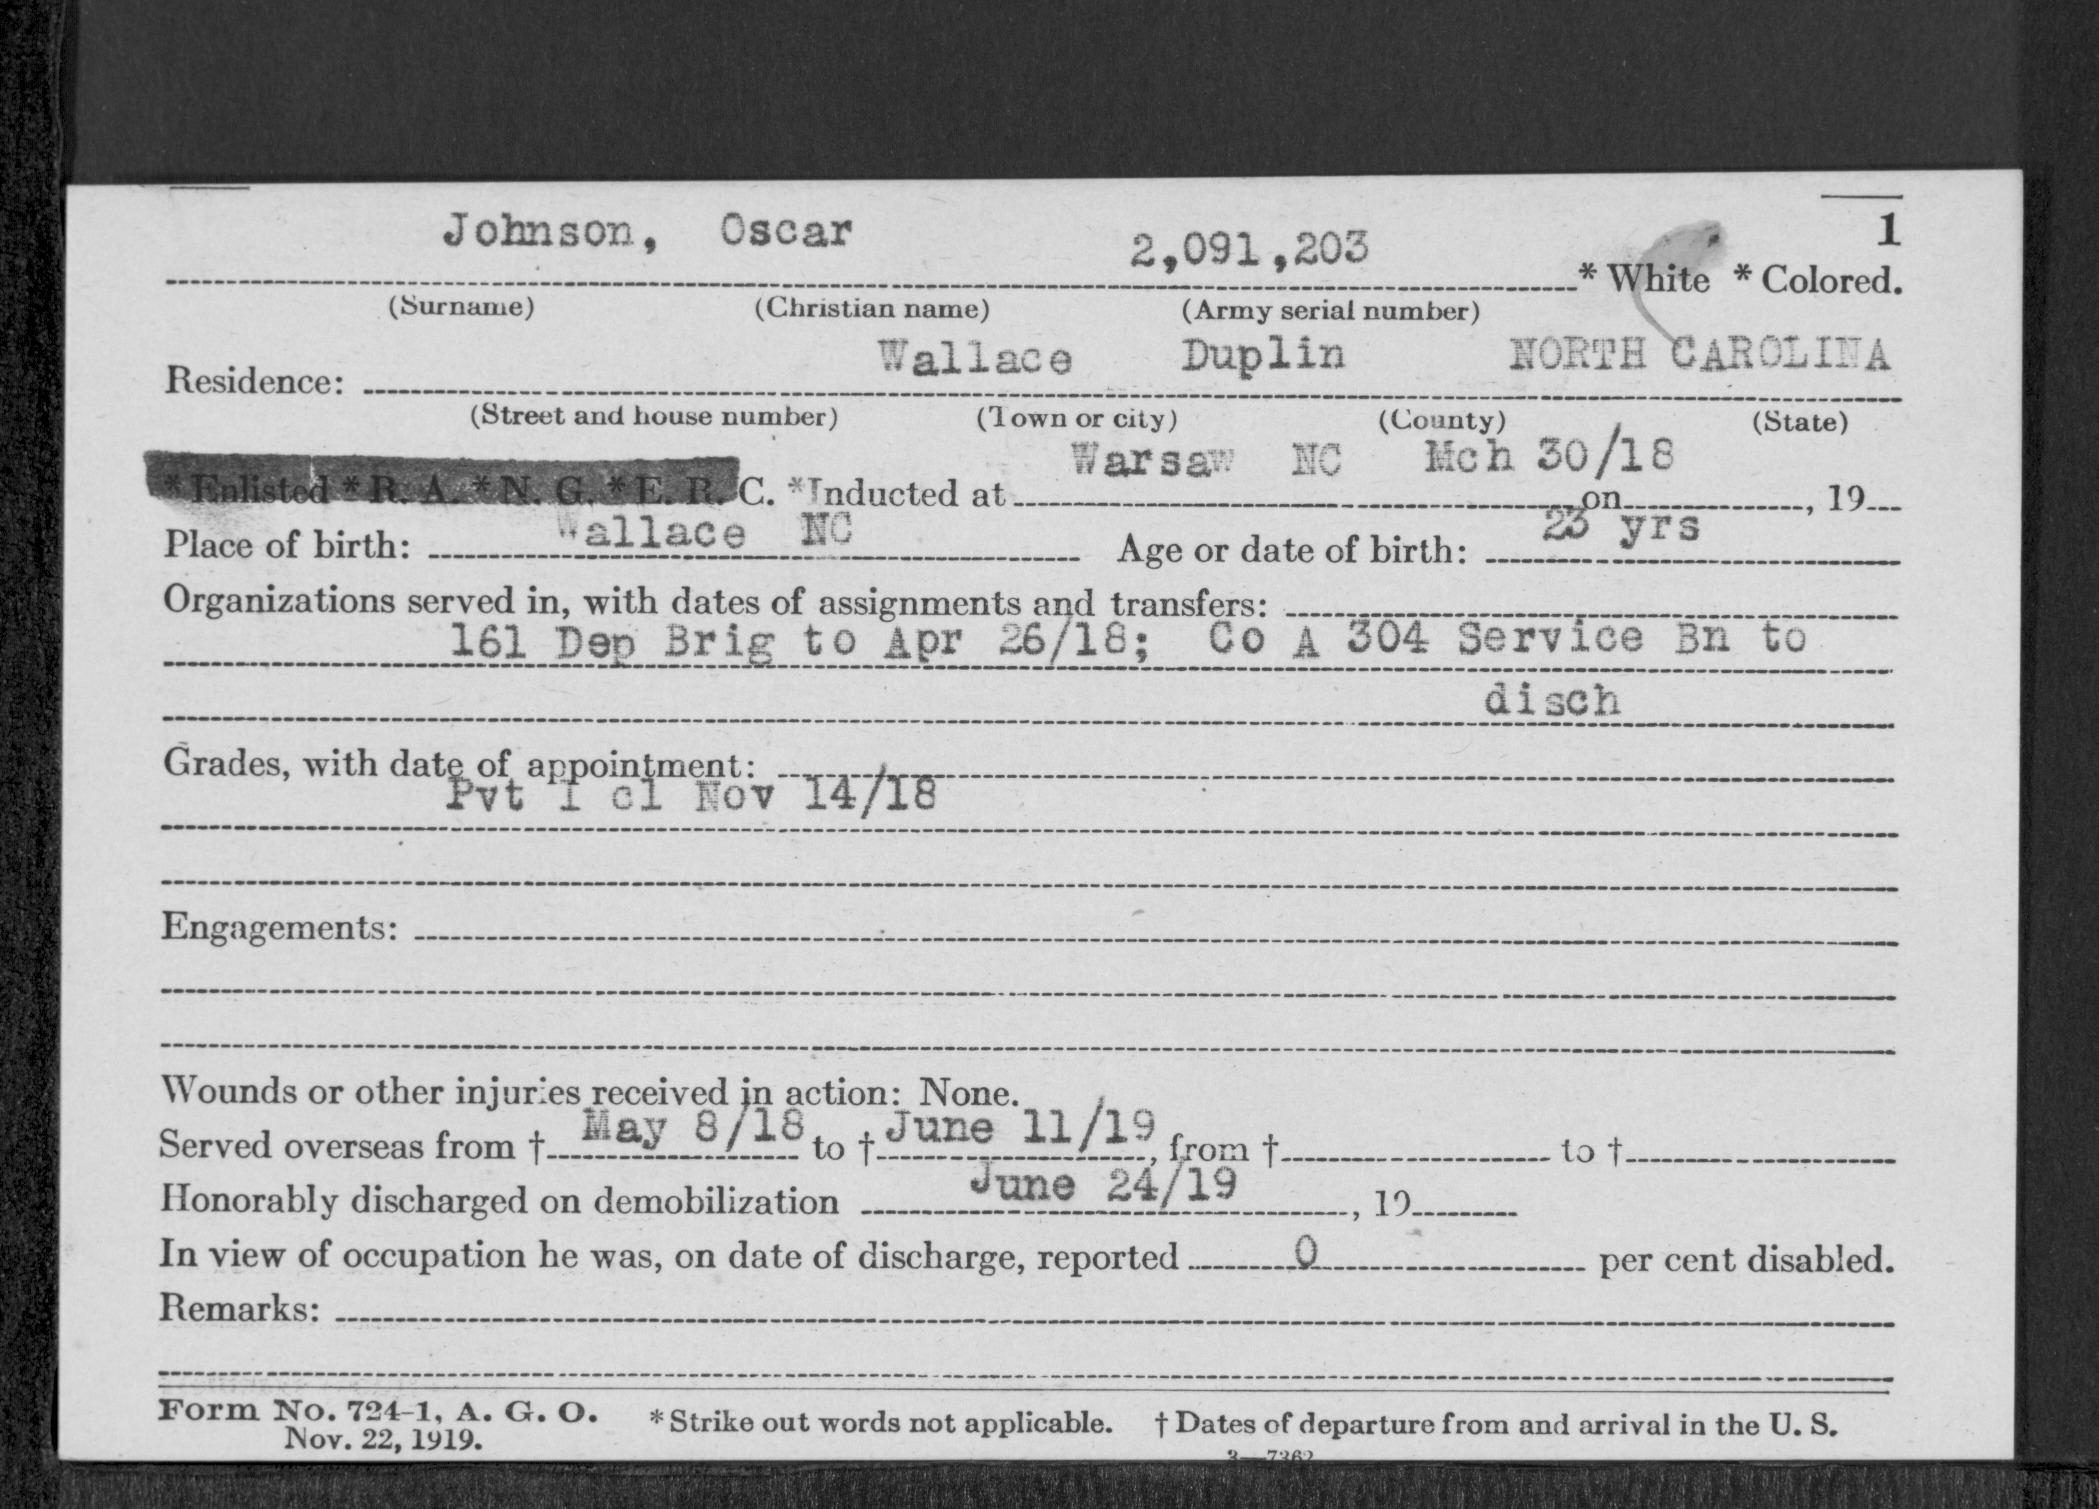 1
Johnson, Oscar 2,091,203 * White * Colored.
(Surname) (Christian name) (Army serial number)
Residence: Wallace Duplin NORTH CAROLINA
(Street and house number) (Town or city) (County) (State)
* Enlisted * R. A. * N. G. * E. R. C. * Inducted at Warsaw NC on Mch 30/18, 19
Place of birth: Wallace NC Age or date of birth: 23 yrs
Organizations served in, with dates of assignments and transfers:
161 Dep Brig to Apr 26/18; Co A 304 Service Bn to
disch
Grades, with date of appointment:
Pvt 1 cl Nov 14/18
Engagements:
Wounds or other injuries received in action: None.
Served overseas from † May 8/18 to † June 11/19, from † to †
Honorably discharged on demobilization June 24/19, 19
In view of occupation he was, on date of discharge, reported 0 per cent disabled.
Remarks:
Form No. 724-1, A. G. O. * Strike out words not applicable. † Dates of departure from and arrival in the U. S.
Nov. 22, 1919.
3—7362